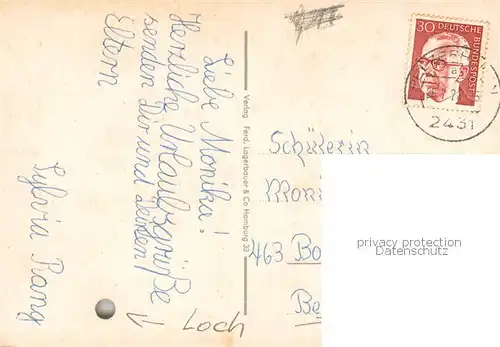 Liebe Monika!
Herzliche Urlaubsgrüße
senden dir und deinen
Eltern
Sylvia Rang
Loch
Verlag Ferd. Lagerbauer & Co Hamburg 33
30
DEUTSCHE
BUNDESPOST
2431
Schülerin
Moni
463 Bo
Be
privacy protection
Datenschutz